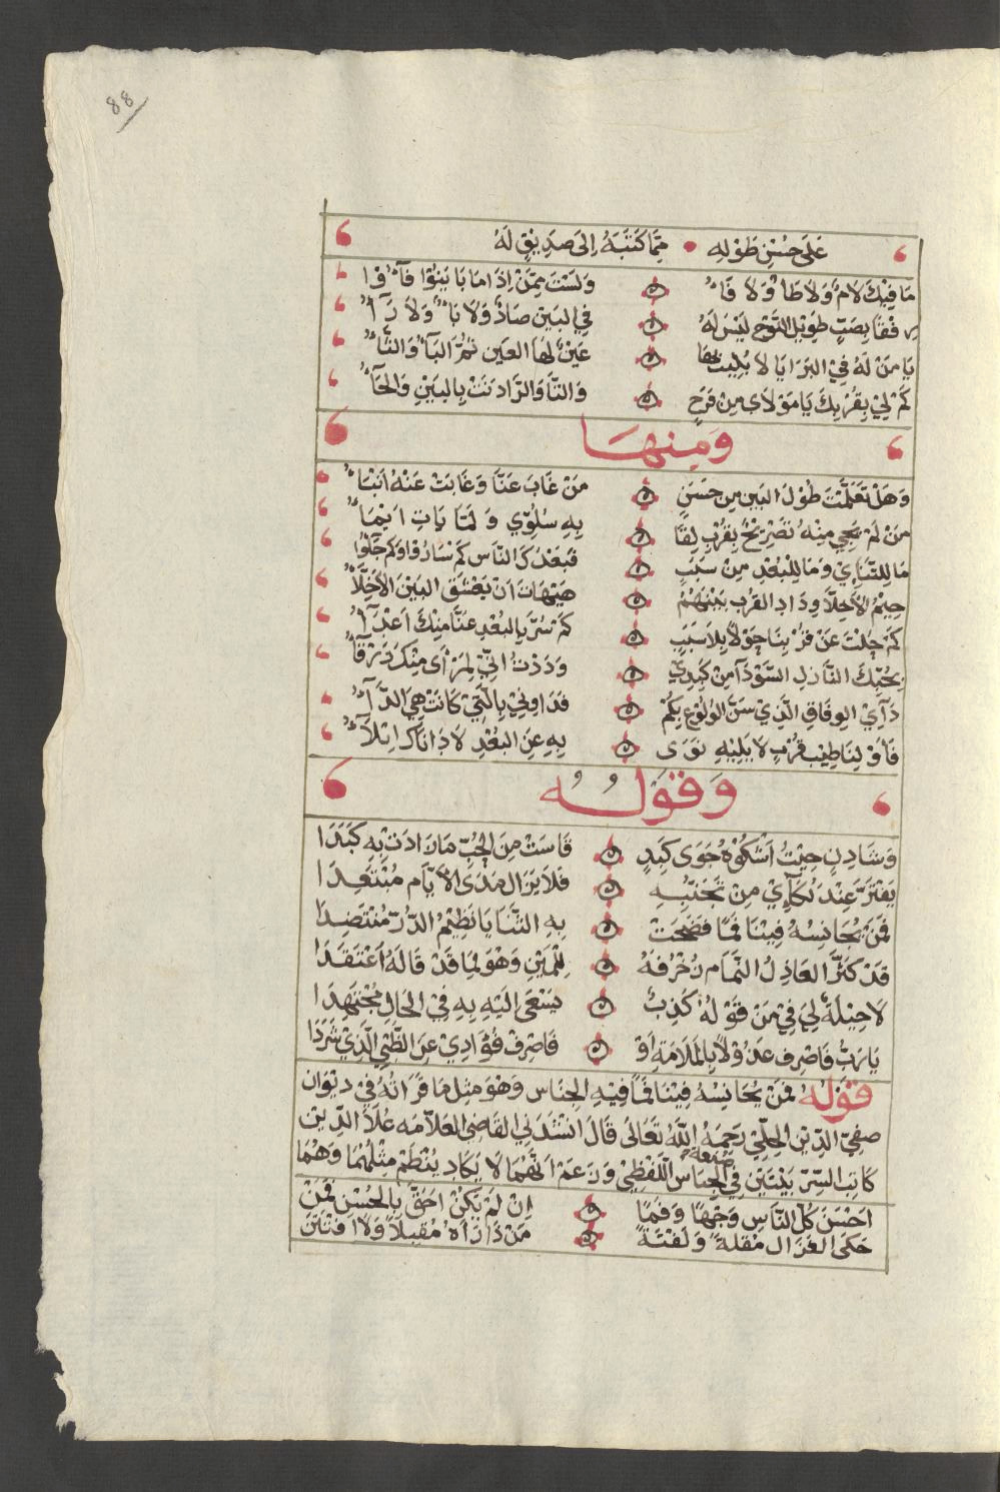 88
عَلَى حُسْنِ طَوْلِهِ • مِمَّا كَتَبَهُ اِلَى صَدِيقٍ لَهُ
مَا فِيْكَ لَامٌ وَلَا طَاءٌ وَلَا فَاءُ وَلَسْتَ مِمَّنْ اِذَا مَا بَايَنُوْا فَاءُوْا
رفقًا بِصَبٍّ طَوِيْلِ النَّوْحِ لَيْسَ لَهُ فِي البَيْنِ صَادٌ وَلَا بَاءٌ وَلَا رَآءُ
يَا مَنْ لَهُ فِي البَرَايَا لَا بُلِيتَ بِهَا عَيْنٌ لَهَا العَيْن ثُمَّ البَآءُ وَالتَّآءُ
كَمْ لِيْ بِقُرْبِكَ يَا مَوْلَاى مِنْ فَرَحٍ وَالتَّا وَالرَّا دنَتْ بِالبَيْنِ وَالحَآءُ
وَمِنهَا
وَهَلْ تَعَلَّمْتَ طُوْلَ البَيْنِ مِن حَسَنٍ مَنْ غَابَ عَنَّا وَغَابَتْ عَنْهُ اَنْبَاءُ
مَنْ لَمْ يَجِي مِنْهُ تَصْرِيْحٌ بِقُرْبِ لِقًا بِهِ سُلُوِّي وَلَمَّا يَاتِ ايْمَاءُ
مَا لِلتَّنَاءِيْ وَمَا لِلْبُعْدِ مِنْ سَبَبٍ فَبَعْدُ كَ النَّاسِ كَمْ سَارُوْا وَكَمْ جَاؤُا
حِيْمُ الأَخِلَّا وِدَادِ القُرْب بَيْنَهُمُ هَيْهَاتَ اَنْ يَعْشَقَ البَيْنَ الأَخِلَّاءُ
كَمْ حُلْتَ عَنْ قُرْبِنَا حِوْلًا بِلَا سَبَبٍ كَمْ سُرَّ بِالبُعْدِ عَنَّا مِنْكَ اَعْدَآءُ
بِحُبِّكَ النَّازِلِ السَّوْدَآ مِنْ كَبِدِيْ وَدَدْتُ اَنِّيْ لِمَرْأَى مِنْكَ زَرْقَآءُ
دَآءِيْ الوِفَاقِ الَّذِيْ سَنَّ الوُلُوْعِ بِكُمْ فَدَاوِنِيْ بِالَّتِيْ كَانَتْ هِيَ الدَّآءُ
فَأَوْلِنَا طِيْبَ قُرْبٍ لَا يَلِيْهِ نَوَى بِهِ عَنِ البُعْدِ لَا دَانَاكَ اِبْلَآءُ
وَقَوْلُهُ
وَشَادِنٍ حِيْتُ اَشْكُوْهُ جَوَى كَبِدٍ قَاسَتْ مِنَ الحُبِّ مَا زَادَتْ بِهِ كَبَدَا
يَفْتَرُّ عِنْدَ بُكَآءِيْ مِنْ تَجَنُّبِهِ فَلَا يَزَال مَدَى الاَيَّام مُبْتَعِدَا
فَمَنْ يُجَانِسْهُ فِيْنَا فَمًا فَضَحَتْ بِهِ الثَّنَايَا نَظِيْمُ الدُّرِّ مُنْتَضِدَا
قَدْ كَثَّرَ العَاذِلُ النَّمَام زُخْرُفَهُ لِلْمَيْنِ وَهْوَ لِمَا قَدْ قَالَهُ اعْتَقَدَا
لَا حِيْلَةٌ لِيَ فِيْ مَنْ قَوْلُهُ كَذِبٌ يَسْعَى اِلَيْهِ بِهِ فِيْ الحَالِ مُجْتَهِدَا
يَا رَبُّ فَاصْرِفْ عَذُوْلًا بِالمَلَامَةِ اَوْ فَاصْرِفْ فُؤَادِيْ عَنِ الظَّبْيِ الَّذِيْ شَرَدَا
قَوْلُهُ فَمَنْ يُجَانِسْهُ فِيْنَا فَمًا فِيْهِ الجِنَاس وَهْوَ مِثْل مَا قَرَاتُهُ فِيْ دِيْوَان
صَفِيّ الدِّيْن الحِلِّيْ رَحِمَهُ اللّٰهُ تَعَالَى قَالَ انْشَدَنِي القَاضِى العَلَّامَه عَلَا الدِّيْن
كَاتِب السِّرّ بَيْتَيْن فِي الجِنَاس اللَّفْظِيْ وَزَعَمَ اَنَّهُمَا لَا يُكَاد يُنْظَمُ مِثْلُهُمَا وَهُمَا
اَحْسَن كُلّ النَّاسِ وَجْهًا وَفَمًا اِنْ لَمْ يَكُنْ اَحَقَّ بِالحُسْنِ فَمَنْ
حَكَى الغَزَال مُقْلَةً وَلَفْتَةً مَنْ ذَا رَاهُ مُقْبِلًا وَلَا افْتَتَنْ